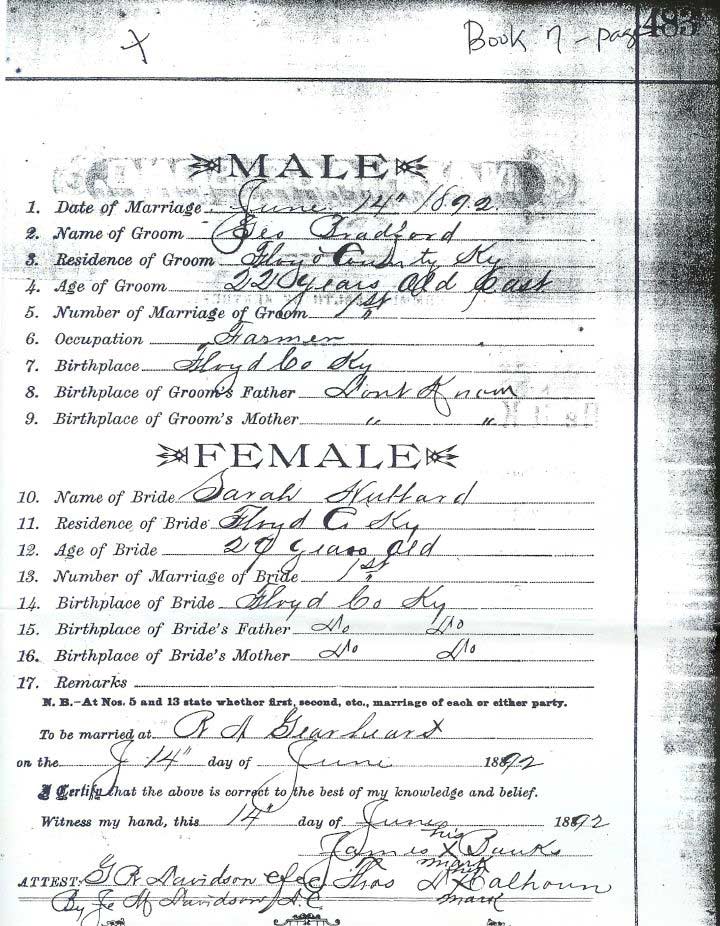 Book 7 - page 483
X
MALE
1. Date of Marriage June 14" 1892
2. Name of Groom Geo Bradford
3. Residence of Groom Floyd County Ky
4. Age of Groom 22 years Old Past
5. Number of Marriage of Groom 1st
6. Occupation Farmer
7. Birthplace Floyd Co Ky
8. Birthplace of Groom's Father Dont Know
9. Birthplace of Groom's Mother " "
FEMALE
10. Name of Bride Sarah Hubbard
11. Residence of Bride Floyd C Ky
12. Age of Bride years Old
13. Number of Marriage of Bride 1st
14. Birthplace of Bride Floyd Co Ky
15. Birthplace of Bride's Father Do Do
16. Birthplace of Bride's Mother Do Do
17. Remarks
N. B.-At Nos. 5 and 13 state whether first, second, etc., marriage of each or either party.
To be married at R A Gearheart
on the 14" day of June 1892
I Certify that the above is correct to the best of my knowledge and belief.
Witness my hand, this 14" day of June 1892
James his X mark Banks
ATTEST: G R Davidson clerk Thos his X mark Calhoun
By Davidson D.C.